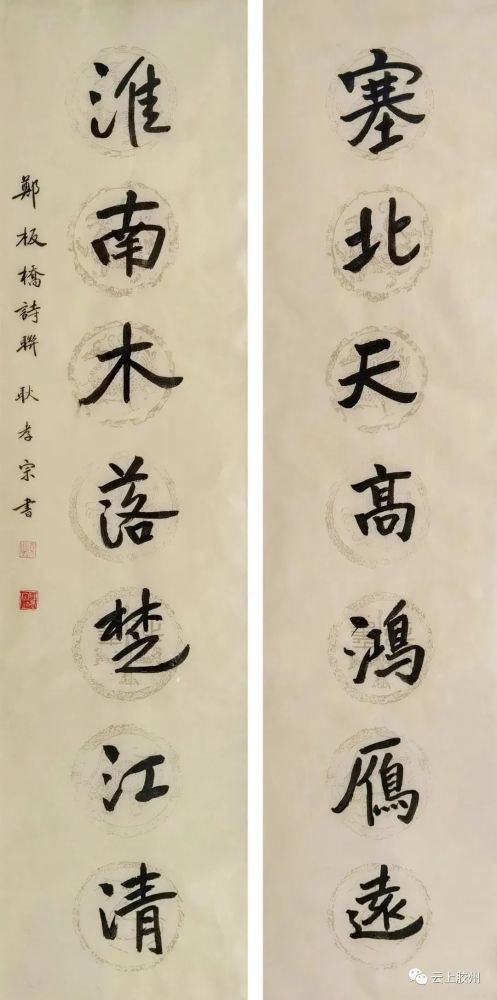 塞北天高鴻鴈遠
淮南木落楚江清
鄭板橋詩聯 耿孝宗書
云上胶州